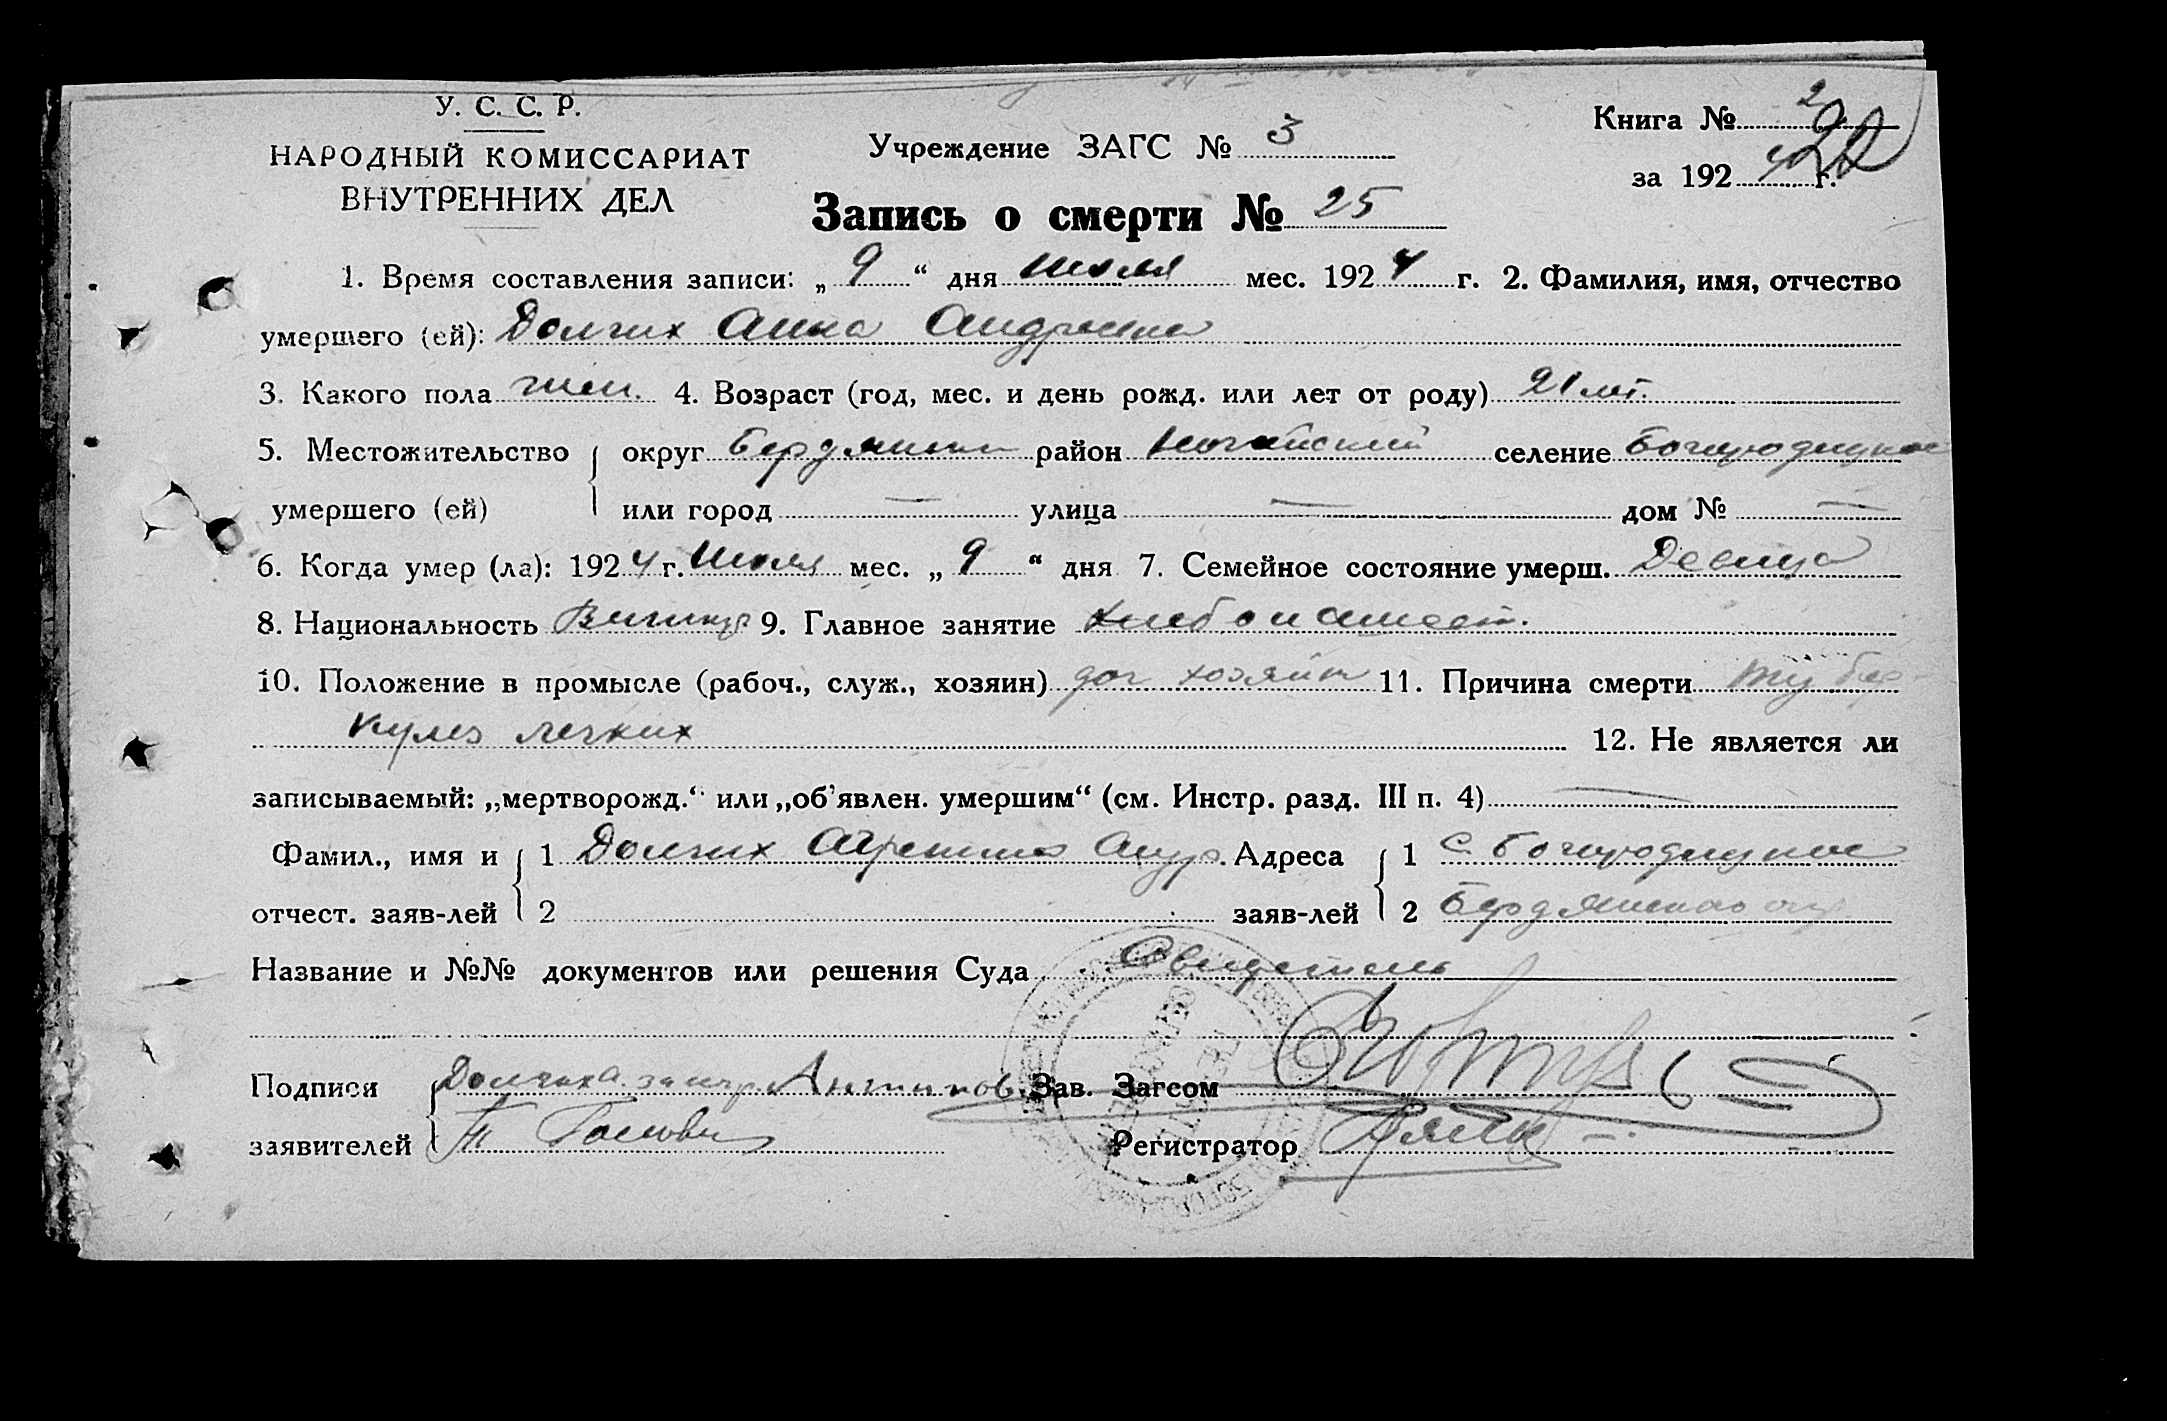 У. С. С. Р.
НАРОДНЫЙ КОМИССАРИАТ
ВНУТРЕННИХ ДЕЛ
Учреждение ЗАГС № 3
Книга № 2
за 192 4 г.
Запись о смерти № 25
1. Время составления записи: „ 9 “ дня июля мес. 192 4 г. 2. Фамилия, имя, отчество
умершего (ей): Долгих Анна Андреевна
3. Какого пола жен. 4. Возраст (год, мес. и день рожд. или лет от роду) 21 лет.
5. Местожительство округ Бердянский район Ногайский селение Богородицкое
умершего (ей) или город — улица — дом № —
6. Когда умер (ла): 192 4 г. Июля мес. „ 9 “ дня 7. Семейное состояние умерш. Девица
8. Национальность 9. Главное занятие хлебопашест.
10. Положение в промысле (рабоч., служ., хозяин) доч хозяина 11. Причина смерти тубер-
кулез легких 12. Не является ли
записываемый: „мертворожд.“ или „об’явлен. умершим“ (см. Инстр. разд. III п. 4) —
Фамил., имя и 1 Долгих Адреса 1 с. Богородицкое
отчест. заяв-лей 2 заяв-лей 2 Бердянского окр.
Название и №№ документов или решения Суда Свидетель
Подписи Долгих а за негр. Антипов Зав. Загсом
заявителей Регистратор